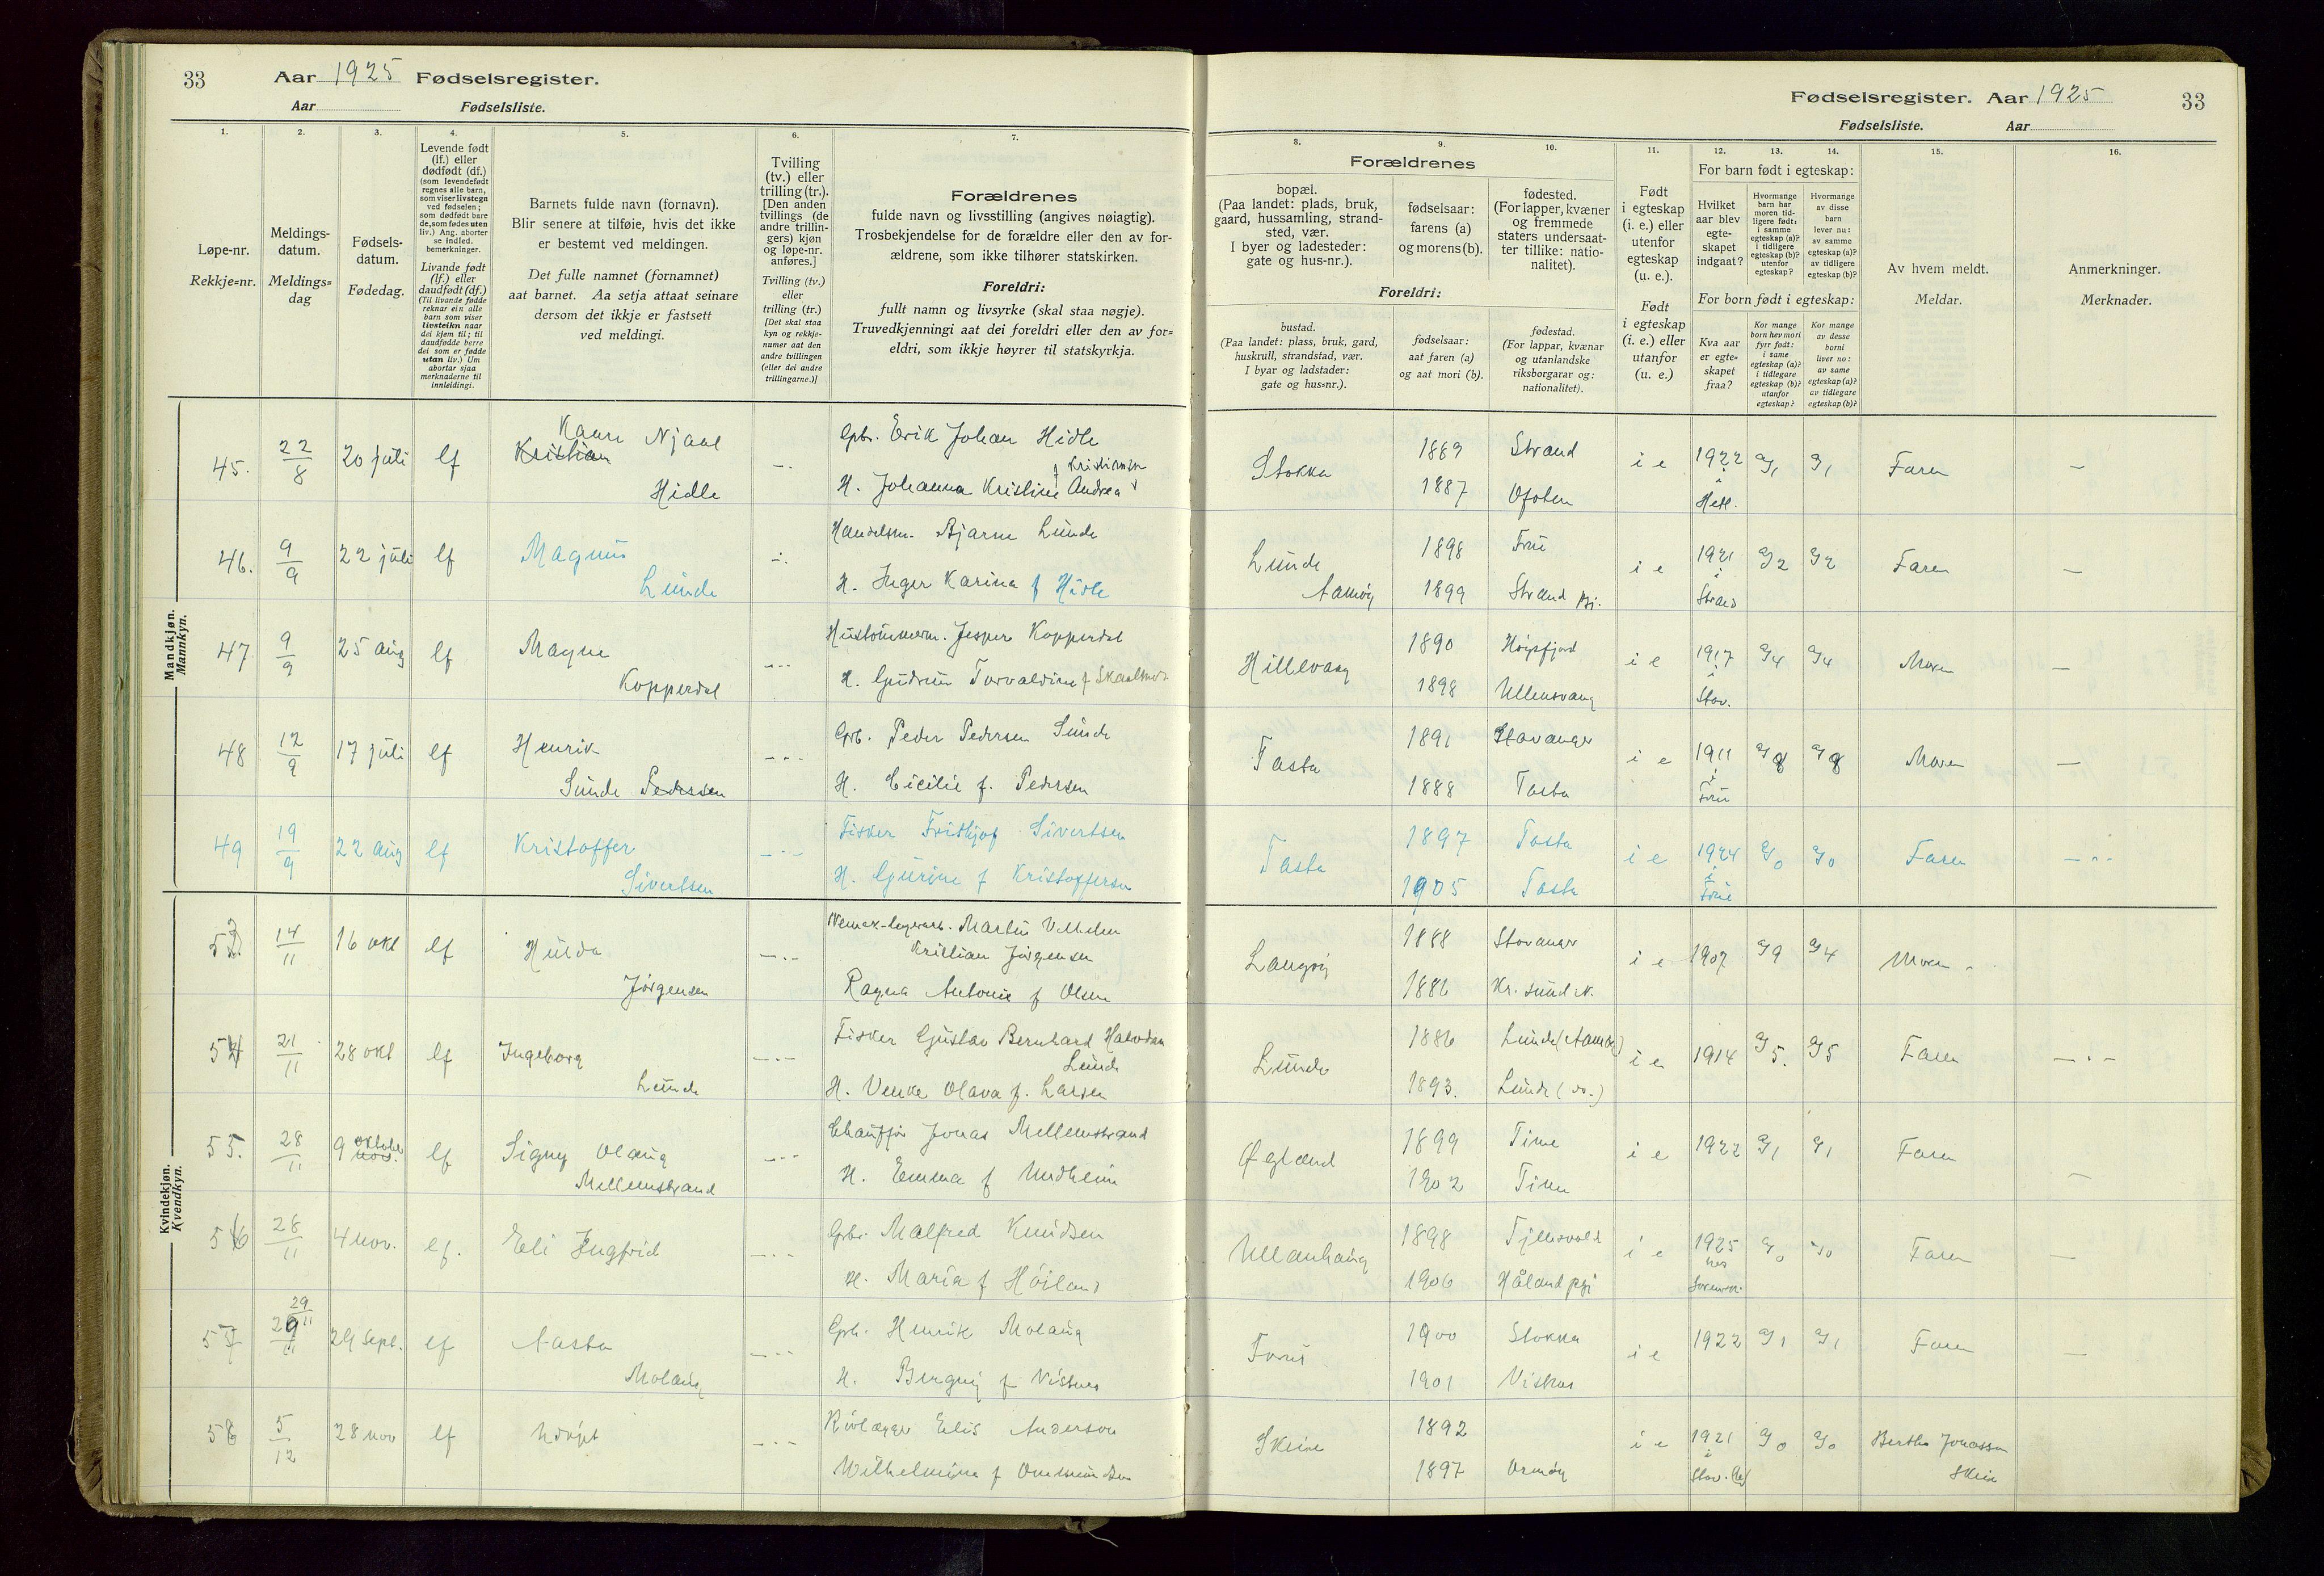 33
Aar 1925 Fødselsregister.
Aar Fødselsliste.
1.
2.
3.
4.
5.
6.
7.
Løpe-nr.
Rekkje=nr.
Meldings-
datum.
Meldings=
dag
Fødsels-
datum.
Fødedag.
Levende født
(lf.) eller
dødfødt (df.)
(som levendefødt
regnes alle barn,
som viser livstegn
ved fødselen;
som dødfødt bare
de, som fødes uten
liv.) Ang. aborter
se indled.
bemerkninger.
Livande født
(lf.) eller
daudfødt (df.)
(Til livande fødde
reknar ein alle
barn som viser
livsteikn naar
dei kjem til; til
daudfødde berre
dei som er fødde
utan liv.) Um
abortar sjaa
merknaderne til
innleidingi.
Barnets fulde navn (fornavn).
Blir senere at tilføie, hvis det ikke
er bestemt ved meldingen.
Det fulle namnet (fornamnet)
aat barnet. Aa setja attaat seinare
dersom det ikkje er fastsett
ved meldingi.
Tvilling
(tv.) eller
trilling (tr.).
[Den anden
tvillings (de
andre trillin-
gers) kjøn
og løpe-nr.
anføres.]
Tvilling (tv.)
eller
trilling (tr.)
[Det skal staa
kyn og rekkje-
numer aat den
andre tvillingen
(eller dei andre
trillingarne.)]
Forældrenes
fulde navn og livsstilling (angives nøiagtig).
Trosbekjendelse for de forældre eller den av for-
ældrene, som ikke tilhører statskirken.
Foreldri:
fullt namn og livsyrke (skal staa nøgje).
Truvedkjenningi aat dei foreldri eller den av for=
eldri, som ikkje høyrer til statskyrkja.
Mandkjøn.
Mannkyn.
45. 22/8 20 juli lf Kaare Njaal
Kristian
Hidle
Gbr. Erik Johan Hidle
H. Johanna Kristine Andrea f Kristiansen
46. 9/9 22 juli lf Magnus
Lunde
Handelsm. Bjarne Lunde
H. Inger Karina f Hidle
47 9/9 25 aug lf Magne
Kopperdal
Hustømmerm. Jesper Kopperdal
H. Gudrun Torvaldine f
48 12/9 17 juli lf Henrik
Sunde Pedersen
Gbr. Peder Pedersen Sunde
H. Cicilie f. Pedersen
49 19/9 22 aug lf Kristoffer
Sivertsen
Fisker Frithjof Sivertsen
H. Gurine f Kristoffersen
Kvindekjøn.
Kvendkyn.
53 14/11 16 okt lf Hulda
Jørgensen
Martin Vilhelm
Kristian Jørgensen
Ragna Antonie f Olsen
54 21/11 28 okt lf Ingeborg
Lunde
Fisker Gustav Bernhard Halvdan
Lunde
H. Venke Olava f. Larsen
55. 28/11 9 oktober nov. lf Signy Olaug
Mellemstrand
Chauffør Jonas Mellemstrand
H. Emma f Undheim
56 28/11 4 nov. lf. Eli Ingfrid
Gbr. Malfred Knudsen
H. Maria f Høiland
57 29/11 29 sept. lf Aasta
Molaug
Gbr. Henrik Molaug
H. Bergny f Vistnes
58 5/12 28 nov lf Udøpt
Rørlægger Elis Anderson
Wilhelmina f Omdundsen
Fødselsregister. Aar 1925
33
Fødselsliste. Aar
8.
9.
10.
11.
12.
13.
14.
15.
16.
Forældrenes
bopæl.
(Paa landet: plads, bruk,
gaard, hussamling, strand-
sted, vær.
I byer og ladesteder:
gate og hus-nr.).
fødselsaar:
farens (a)
og morens (b).
fødested.
(For lapper, kvæner
og fremmede
staters undersaat-
ter tillike: natio-
nalitet).
Foreldri:
bustad.
(Paa landet: plass, bruk, gard,
huskrull, strandstad, vær.
I byar og ladstader:
gate og hus=nr.).
fødselsaar:
aat faren (a)
og aat mori (b).
fødestad.
(For lappar, kvænar
og utanlandske
riksborgarar og:
nationalitet).
Født
i egteskap
(i. e.) eller
utenfor
egteskap
(u. e.).
Født
i egteskap
(i. e.) eller
utanfor
(u. e.)
For barn født i egteskap:
Hvilket
aar blev
egte-
skapet
indgaat?
Hvormange
barn har
moren tid-
ligere født:
i samme
egteskap (a)?
i tidligere
egteskap (b)?
utenfor
egteskap?
Hvormange
av disse
barn
lever nu:
av samme
egteskap (a)?
av tidligere
egteskap (b)?
For born født i egteskap:
Kva aar
er egte=
skapet
fraa?
Kor mange
born hev mori
fyrr født:
i same
egteskap (a)?
i tidlegare
egteskap (b)?
utanfor
egteskap?
Kor mange
av desse
borni
liver no:
av same
egteskap (a)?
av tidlegare
egteskap (b)?
Av hvem meldt.
Meldar.
Anmerkninger.
Merknader.
Stokka 1889 Strand i e 1922 i Hetl. 1 1 Faren —
1887 Ofoten
Lunde 1898 Frue i e 1921 i Strand 2 2 Faren —
Aamøy 1899 Strand pgj.
Hillevaag 1890 Høgsfjord i e 1917 i Stav. 4 4 Moren —
1898 Ullensvang
Tasta 1891 Stavanger i e 1911 i Frue 8 8 Moren —
1888 Tasta
Tasta 1897 Tasta i e 1924 i Frue 0 0 Faren
1905 Tasta
1888 Stavanger i e 1907 9 4 Moren
1886 Kr. sund N.
Lunde 1886 Lunde (Aamøy) i e 1914 5. 5 Faren
1893. Lunde (do.)
Øgland 1899 Time i e 1922 1 1 Faren —
1902 Time
Ullanhaug 1898 Fjellsvold i e 1925 hos Sorenskr. 0 0 Faren —
1906 Håland pgj
Forus 1900 Stokka i e 1922 1 1 Faren —
1901 Vistnes
Skeie 1892 i e 1921 i Stav. 0 0 Berthe Jonassen
1897 Ormøy Skeie